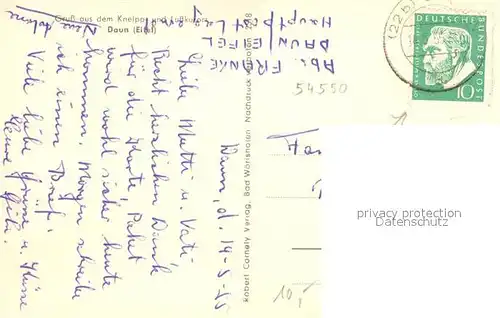 Gruß aus dem Kneipp- und Luftkurort
Daun (Eifel)
Abs. FRANKE
DAUN/EIFEL
Hauptpostl.
Daun, d. 14-5-55
Liebe Mutti u. Vati
Recht herzlichen Dank
für die Karte, Paket
wird wohl sicher heute
kommen. Morgen schreibe
ich einen Brief.
Viele liebe Grüße u. Küsse
Robert Cornely Verlag, Bad Wörrishofen
Nachdruck verboten
54550
10,-
122b
DEUTSCHE
BUNDESPOST
10
privacy protection
watermark